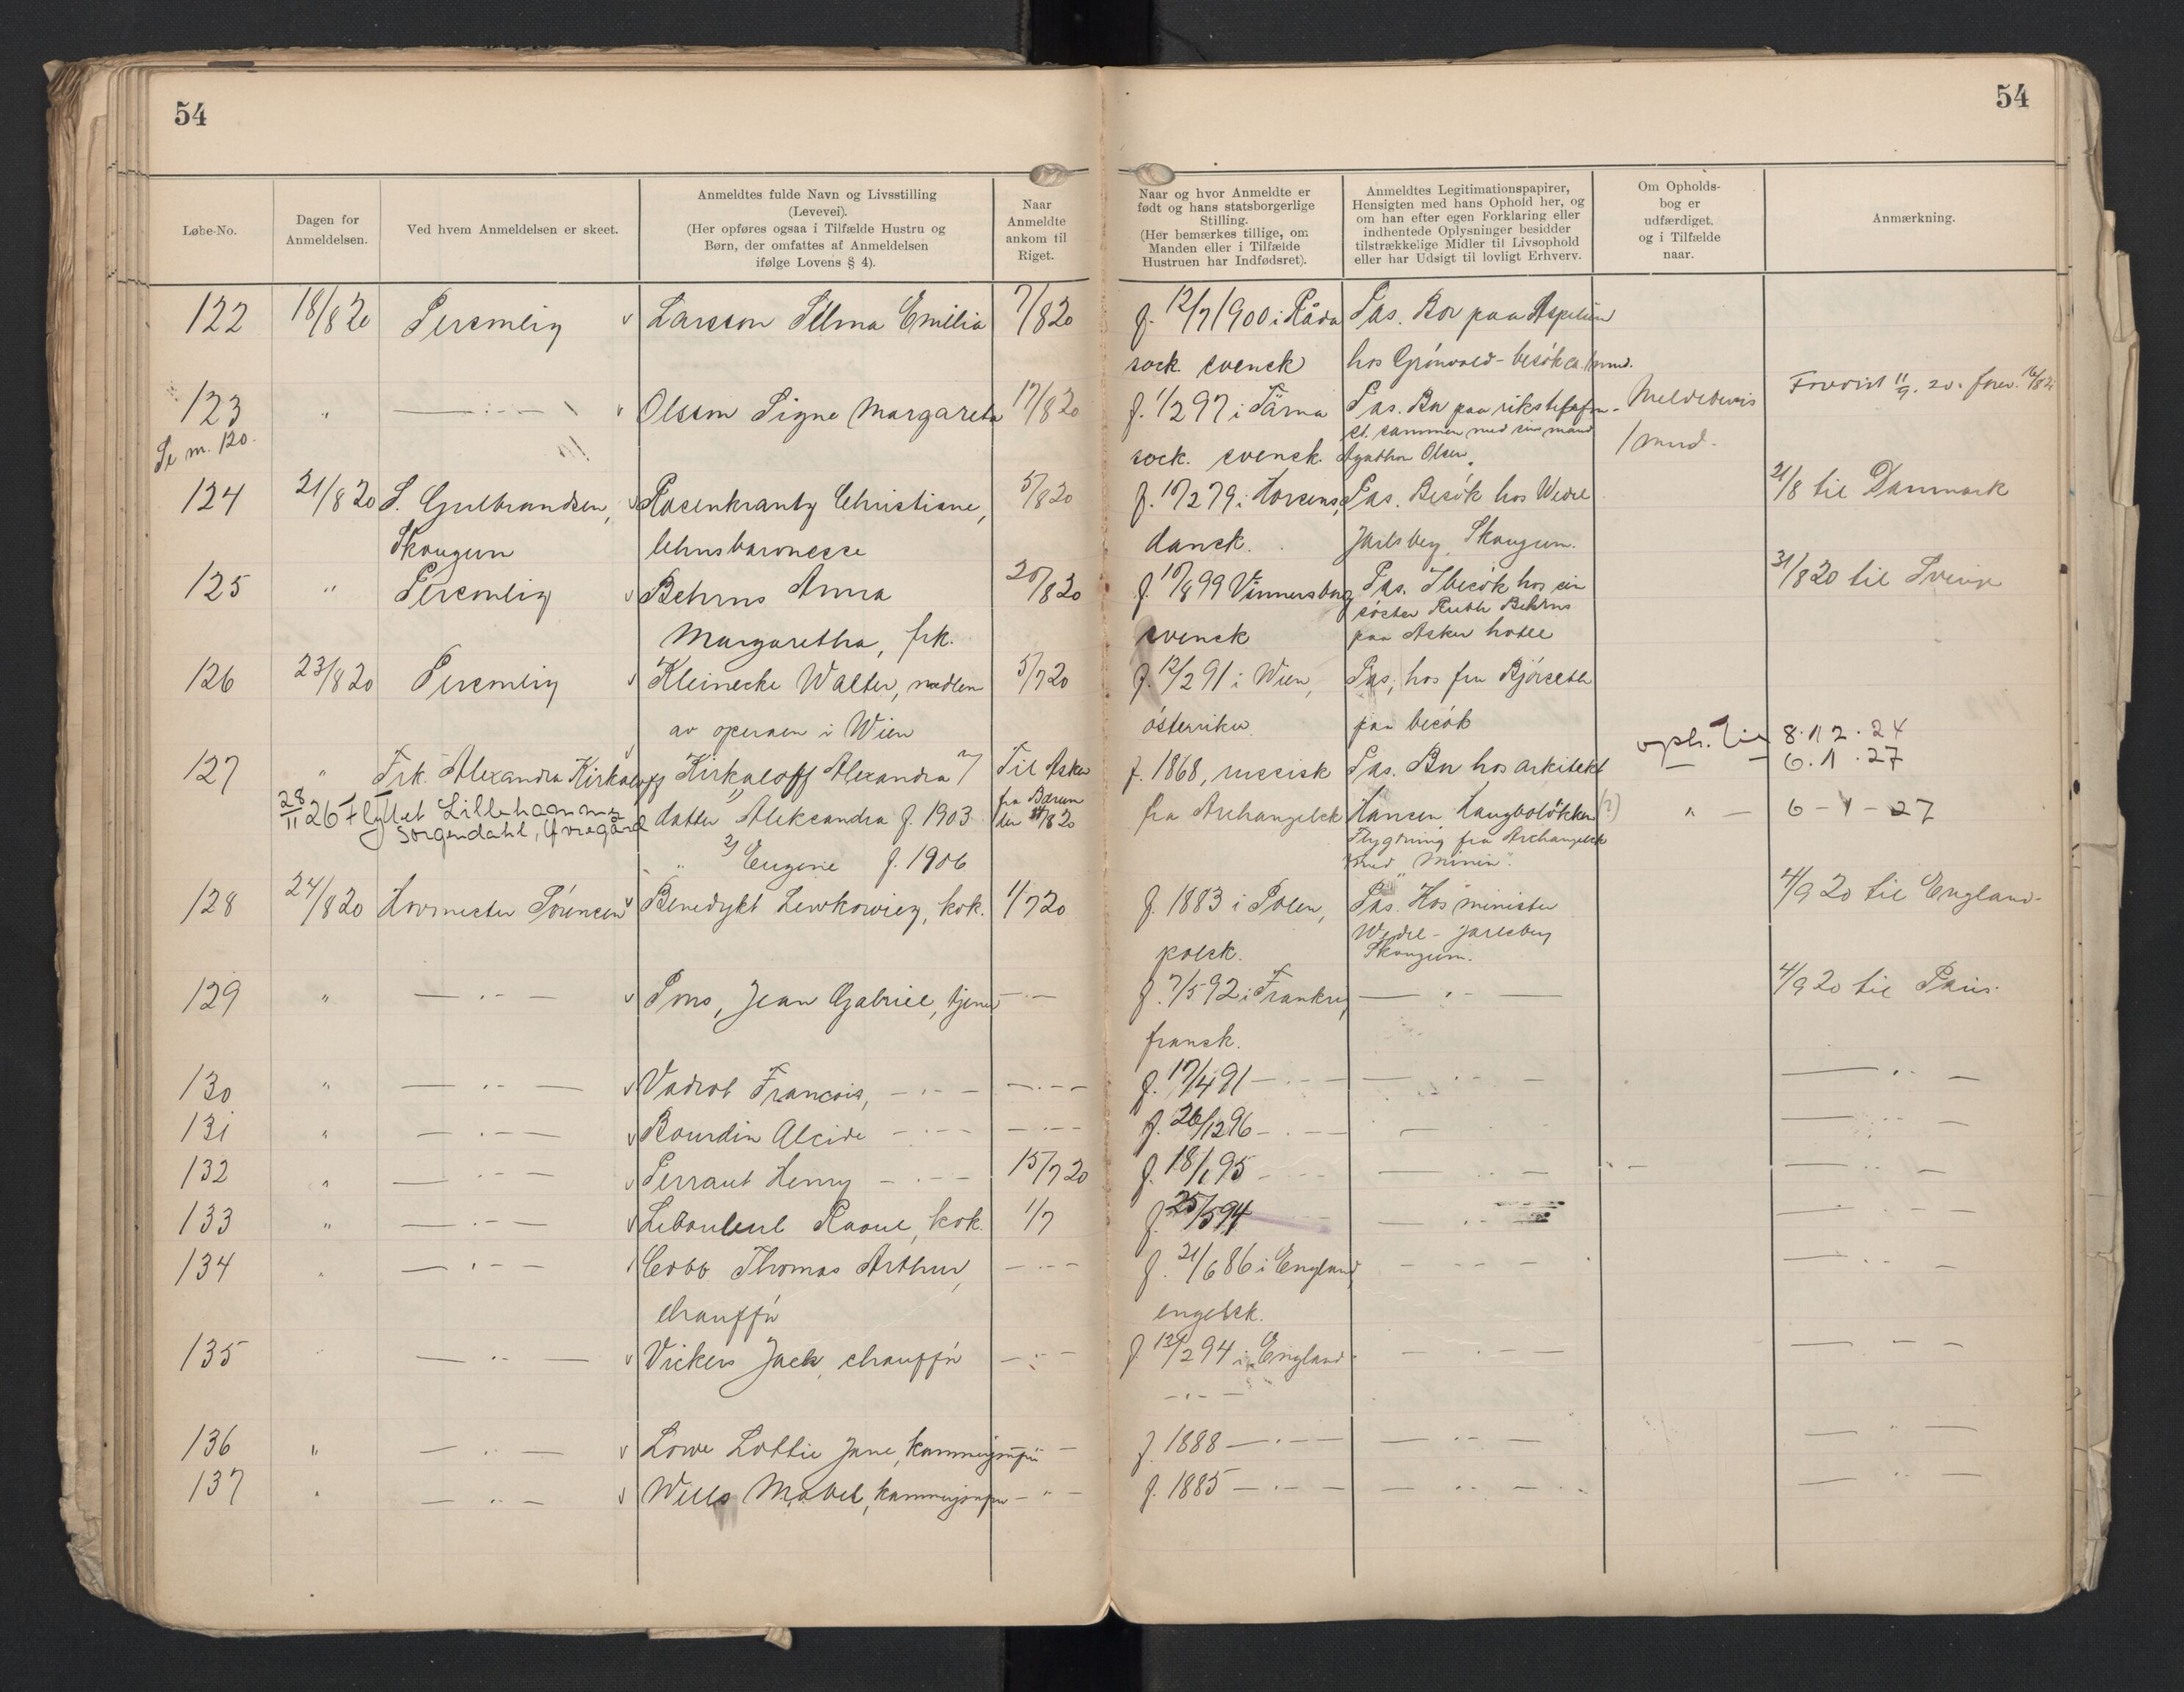 54
54
Løbe-No.
Dagen for Anmeldelsen.
Ved hvem Anmeldelsen er skeet.
Anmeldtes fulde Navn og Livsstilling
(Levevei).
(Her opføres ogsaa i Tilfælde Hustru og
Børn, der omfattes af Anmeldelsen
ifølge Lovens § 4).
Naar
Anmeldte
ankom til
Riget.
Naar og hvor Anmeldte er
født og hans statsborgerlige
Stilling.
(Her bemærkes tillige, om
Manden eller i Tilfælde
Hustruen har Indfødsret).
Anmeldtes Legitimationspapirer,
Hensigten med hans Ophold her, og
om han efter egen Forklaring eller
indhentede Oplysninger besidder
tilstrækkelige Midler til Livsophold
eller har Udsigt til lovligt Erhverv.
Om Opholds-
bog er
udfærdiget,
og i Tilfælde
naar.
Anmærkning.
122 18/8 20 Personlig v Larsson Selma Emilia 7/8 20 f. 12/7 1900 i Råda Pas. Bor paa
sock. svensk hos Grönvold - besök ca. 1 mnd.
123 " — : — v Olsson Signe Margareta 17/8 20 f. 1/2 97 i Tärna Pas. Bor paa Meldebevis
Se nr. 120. sock. svensk. st. sammen med sin mand Agathon Olsen. 1 mnd.
124 21/8 20 S. Gulbrandsen, v Rosenkrantz Christiane, 5/8 20 f. 10/2 79 i Horsens, Pas. Besök hos Wedel 21/8 til Danmark
Skaugum lehnsbaronesse dansk. Jarlsberg, Skaugum.
125 " Personlig v Behrns Anna 20/8 20 f. 10/8 99 Vännersborg Pas. I besök hos sin 31/8 20 til Sverige
söster Ruth Behrns
Margaretha, frk. svensk paa Asker hotell
126 23/8 20 Personlig v Kleinecke Walter, medlem 5/7 20 f. 12/2 91 i Wien, Pas, hos fru Björseth
av operaen i Wien österriker paa besök
127 " Frk. Alexandra Kirkaloff Kirkaloff Alexandra Til Asker f. 1868, russisk Pas. Bor hos arkitekt oph. til 8.12.24
6.1.27
28/11 26 Flyttet Lillehammer datter 1) Aleksandra f. 1903 fra Bærum fra Archangelsk Hansen Haugbolökken (?) " — 6-1-27
Sorgendahl,
Flygtning fra Archangelsk
" 2) Eugenie f. 1906 med "Minin".
128 24/8 20 Hovmester Sörensen v Benedykt Lewkowicz, kok. 1/7 20 f. 1883 i Polen, Pas. Hos minister 4/9 20 til England.
polsk. Wedel-Jarlsberg
Skaugum.
129 " — . — v Pons, Jean Gabriel, tjener — . — f. 7/5 92 i Frankrig, — " — 4/9 20 til Paris.
fransk.
130 " — " — v Vadrot Francois, — . — — . — f. 17/4 91 — . — — " — — " —
131 " — . — v Bourdin Alcide — . — — . — f. 26/12 96 — . — — . — — " —
132 " — . — v Perraut Henry — . — 15/7 20 f. 18/1 95 — " — — " —
133 " — . — v Raoul, kok. 1/7 f. 25/5 94 — " — — . —
134 " — . — Cobb Thomas Arthur, — . — f. 21/6 86 i England, — — — — . —
chauffør engelsk.
135 " — " — v Vickers Jack, chauffør — . — f. 12/2 94 i England — . — — — —
— . —
136 " — " — v Lowe Lottie Jane, kammerjomfru — f. 1888 — . — — " — — " —
137 " — " — v Wells Mabel, kammerjomfru — " — f. 1885 — . — — " — — " —